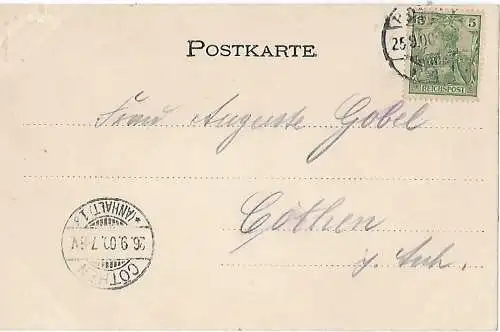 POSTKARTE.
5 5
25.9.00
REICHSPOST
Frau Auguste Gobel
Cöthen
i. Anh.
CÖTHEN
26.9.00.7-8V
*(ANHALT) 1.*